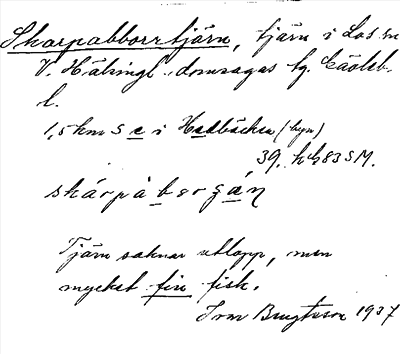 Skarpabborrtjärn, tjärn i Los sn
V. Hälsingl. domsagas tg. Gävleb.
l.
1,5 km S e i Hedbäcken (byn)
39. h S M.
skárpàbərgán
Tjärn saknar utlopp, men
mycket fin fisk.
1937